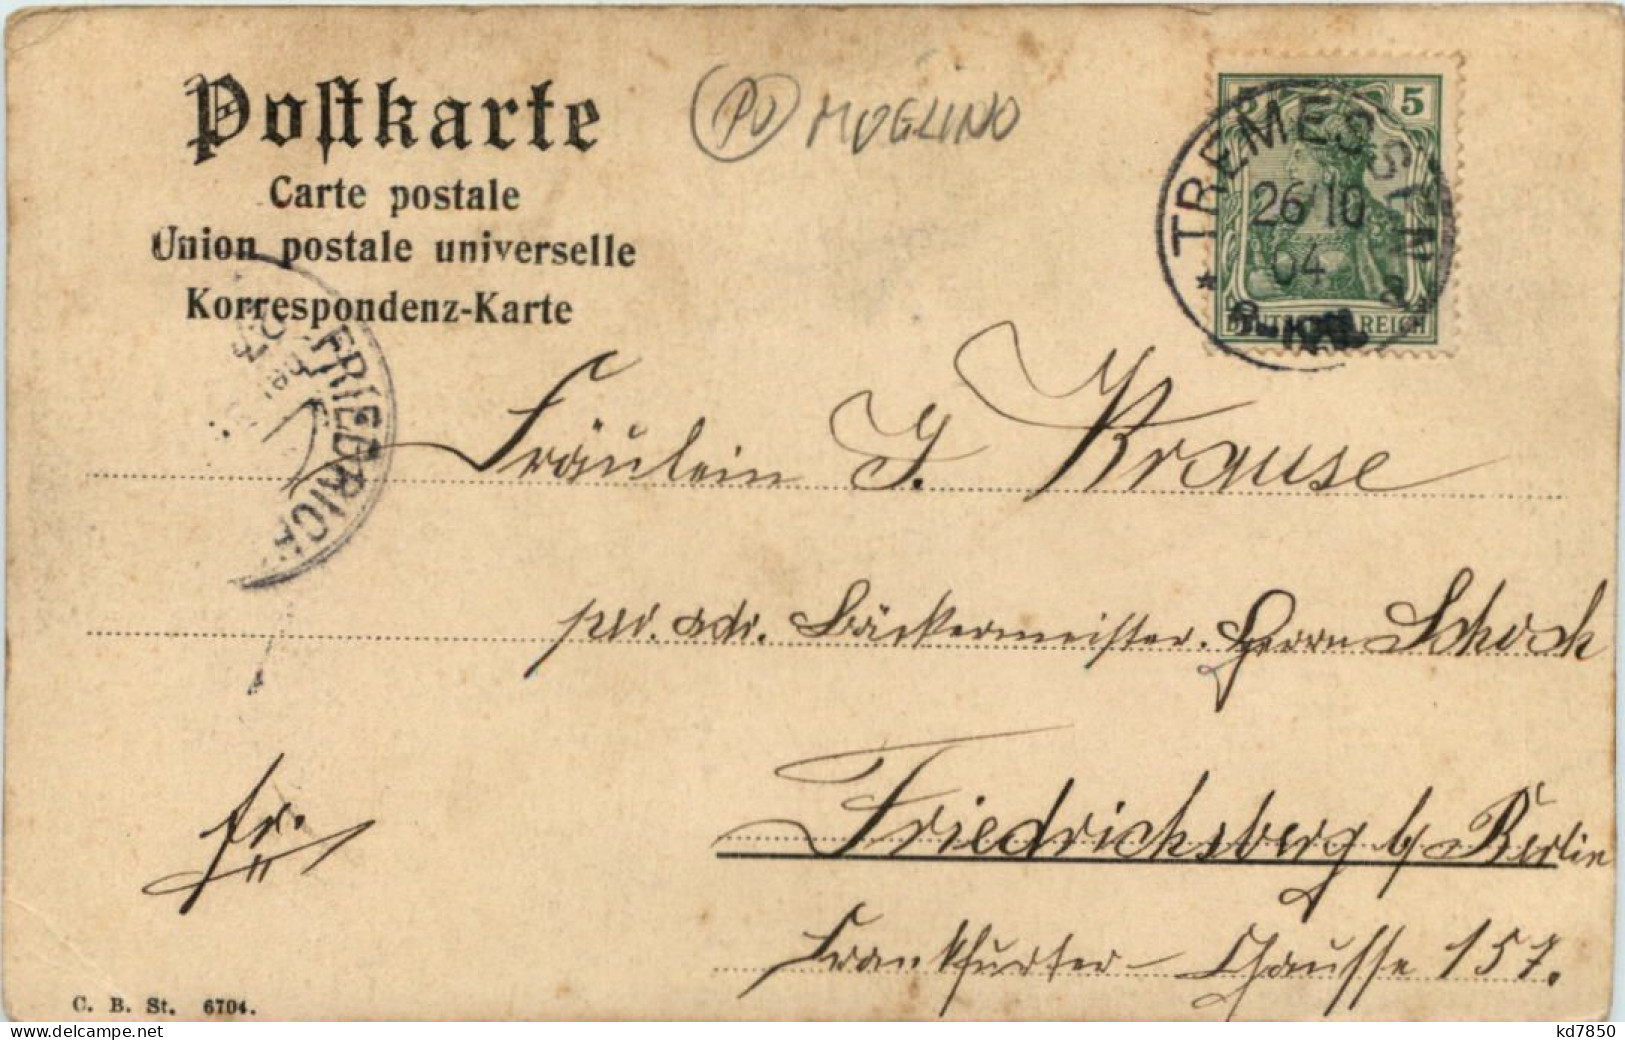 Postkarte
Carte postale
Union postale universelle
Korrespondenz-Karte
PO MOGLINO
5
TREMESSEN
26/10
04
DEUTSCHES REICH
FRIEDRICH
Fräulein J. Krause
per. adr. Bäckermeister. Herrn Schock
fr.
Friedrichsberg b/ Berlin
Frankfurter-Chaussee 157.
C. B. St. 6704.
delcampe.net
kd7850